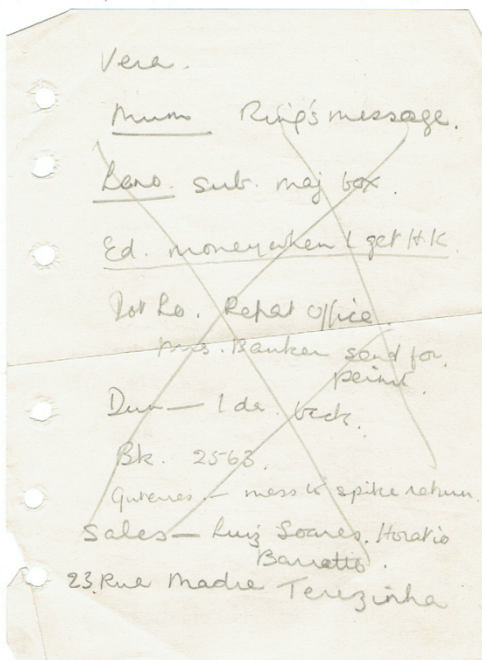 Vera.
Mum Ring's message.
Reno. sub. maj box.
Ed. money when I get H.K.
Dot Lo. Repat Office.
Mrs. Banker send for
permit.
Dun — 1 da. back.
Bk. 2563.
Guterres. — mess to spike return.
Sales — Luiz Soares. Horatio
Barretto.
23, Rua Madre Terezinha